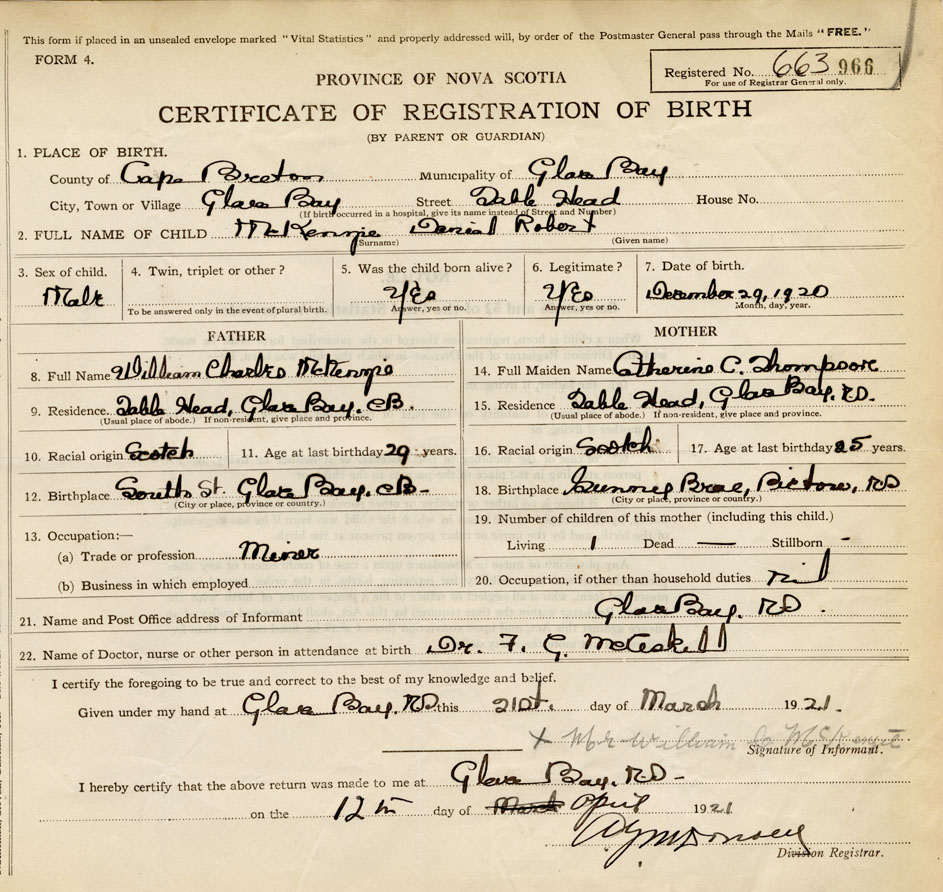 This form if placed in an unsealed envelope marked "Vital Statistics" and properly addressed will, by order of the Postmaster General pass through the Mails "FREE."
FORM 4.
Registered No. 663 966
For use of Registrar General only.
PROVINCE OF NOVA SCOTIA
CERTIFICATE OF REGISTRATION OF BIRTH
(BY PARENT OR GUARDIAN)
1. PLACE OF BIRTH.
County of Cape Breton Municipality of Glace Bay
City, Town or Village Glace Bay Street Table Head House No.
(If birth occurred in a hospital, give its name instead of Street and Number)
2. FULL NAME OF CHILD McKenzie Daniel Robert
(Surname) (Given name)
3. Sex of child. 4. Twin, triplet or other? 5. Was the child born alive? 6. Legitimate? 7. Date of birth.
Male Yes Yes December 29, 1920
To be answered only in the event of plural birth. Answer, yes or no. Answer, yes or no. Month, day, year.
FATHER
8. Full Name William Charles McKenzie
9. Residence Table Head, Glace Bay. CB.
(Usual place of abode.) If non-resident, give place and province.
10. Racial origin Scotch 11. Age at last birthday 29 years.
12. Birthplace South St. Glace Bay. CB-
(City or place, province or country.)
13. Occupation:—
(a) Trade or profession Miner
(b) Business in which employed
MOTHER
14. Full Maiden Name Catherine C. Thompson
15. Residence Table Head, Glace Bay. NS.
(Usual place of abode.) If non-resident, give place and province.
16. Racial origin Scotch 17. Age at last birthday 25 years.
18. Birthplace Sunny Brae, Pictou, NS
(City or place, province or country.)
19. Number of children of this mother (including this child.)
Living 1 Dead — Stillborn -
20. Occupation, if other than household duties. Nil
21. Name and Post Office address of Informant Glace Bay. NS.
22. Name of Doctor, nurse or other person in attendance at birth Dr. F. G.
I certify the foregoing to be true and correct to the best of my knowledge and belief.
Given under my hand at Glace Bay. NS this 21st. day of March 1921.
x Mr William
Signature of Informant.
I hereby certify that the above return was made to me at Glace Bay. NS-
on the 12th day of March April 1921
Division Registrar.